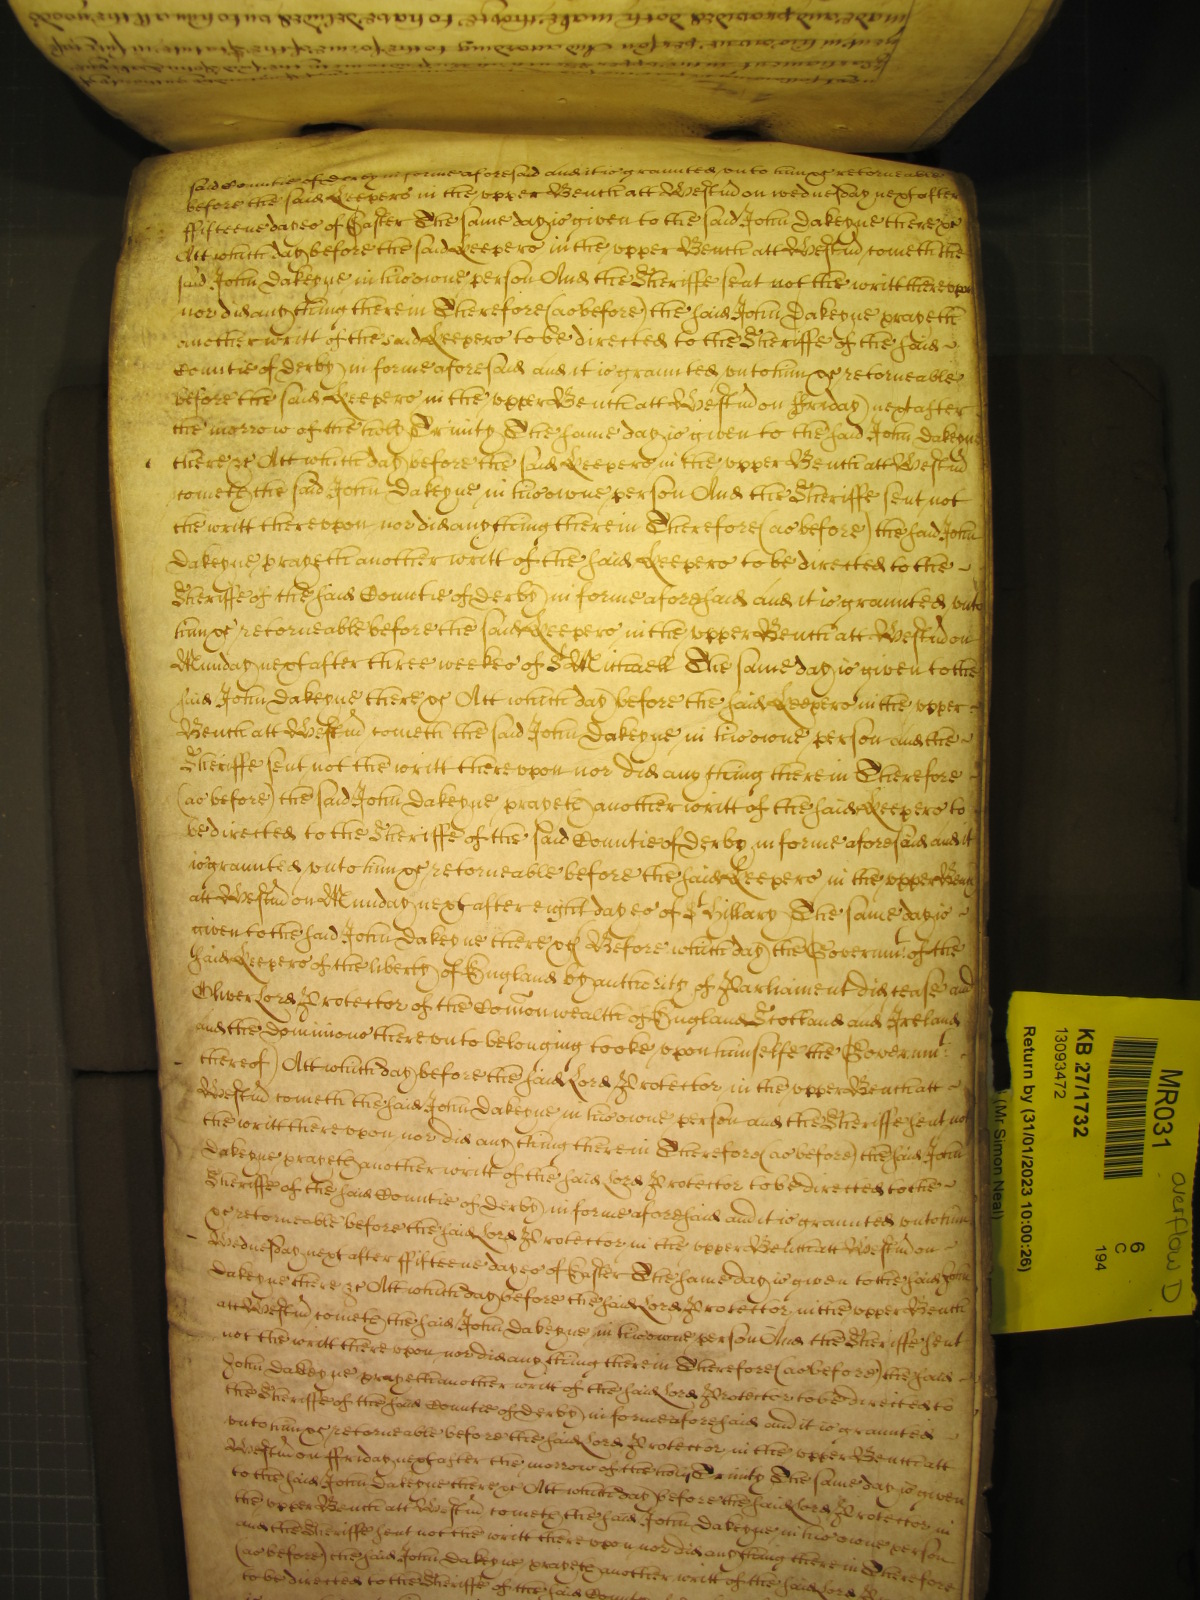 said Countie of Derby in forme aforesaid and it is graunted unto him &c retorneable
before the said Keepers in the upper Bench att Westmr on wednesday next after
ffifteene dayes of Easter The same day is given to the said John Dakeyne there &c
Att which day before the said Keepers in the upper Bench att Westmr cometh the
said John Dakeyne in his owne person And the Sheriffe sent not the writt thereupon
nor did any thing therein Therefore (as before) the said John Dakeyne prayeth
another writt of the said Keepers to be directed to the Sheriffe of the said
Countie of Derby in forme aforesaid and it is graunted unto him &c retorneable
before the said Keepers in the upper Bench att Westmr on ffriday next after
the morrow of the holy Trinity The same day is given to the said John Dakeyne
there &c Att which day before the said Keepers in the upper Bench att Westmr
cometh the said John Dakeyne in his owne person And the Sheriffe sent not
the writt thereupon nor did any thing therein Therefore (as before) the said John
Dakeyne prayeth another writt of the said Keepers to be directed to the
Sheriffe of the said Countie of Derby in forme aforesaid and it is graunted unto
him &c retorneable before the said Keepers in the upper Bench att Westmr on
Munday next after three weekes of St Michaell The same day is given to the
said John Dakeyne there &c Att which day before the said Keepers in the upper
Bench att Westmr cometh the said John Dakeyne in his owne person and the
Sheriffe sent not the writt thereupon nor did any thing therein Therefore
(as before) the said John Dakeyne prayeth another writt of the said Keepers to
be directed to the Sheriffe of the said Countie of Derby in forme aforesaid and it
is graunted unto him &c retorneable before the said Keepers in the upper Bench
att Westmr on Munday next after eight dayes of St Hillary The same day is
given to the said John Dakeyne there &c Before which day the Governmt of the
said Keepers of the liberty of England by authority of Parliament did cease and
Oliver Lord Protector of the Comon wealth of England Scotland and Ireland
and the dominions thereunto belonging tooke upon himselfe the Governmt
thereof Att which day before the said Lord Protector in the upper Bench att
Westmr cometh the said John Dakeyne in his owne person and the Sheriffe sent not
the writt thereupon nor did any thing therein Therefore (as before) the said John
Dakeyne prayeth another writt of the said Lord Protector to be directed to the
Sheriffe of the said Countie of Derby in forme aforesaid and it is graunted unto him
&c retorneable before the said Lord Protector in the upper Bench att Westmr on
Wednesday next after ffifteene dayes of Easter The same day is given to the said John
Dakeyne there &c Att which day before the said Lord Protector in the upper Bench
att Westmr cometh the said John Dakeyne in his owne person And the Sheriffe sent
not the writt thereupon nor did any thing therein Therefore (as before) the said
John Dakeyne prayeth another writt of the said Lord Protector to be directed to
the Sheriffe of the said Countie of Derby in forme aforesaid and it is graunted
unto him &c retorneable before the said Lord Protector in the upper Bench att
Westmr on ffriday next after the morrow of the holy Trinity The same day is given
to the said John Dakeyne there &c Att which day before the said Lord Protector in
the upper Bench att Westmr cometh the said John Dakeyne in his owne person
and the Sheriffe sent not the writt thereupon nor did any thing therein Therefore
(as before) the said John Dakeyne prayeth another writt of the said Lord
to be directed to the Sheriffe of the said
MR031
overflow D
6
C
194
KB 27/1732
13093472
Return by (31/01/2023 10:00:26)
(Mr Simon Neal)